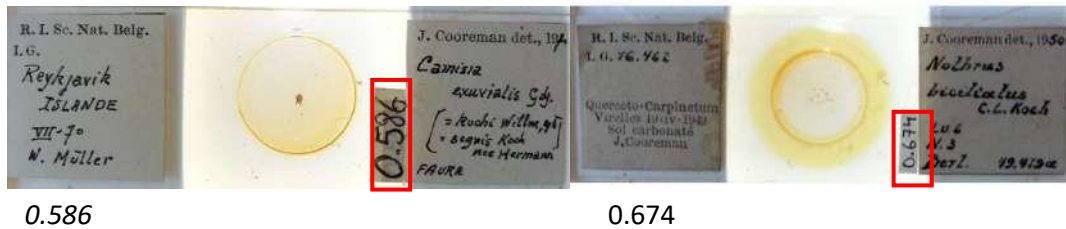 R. I. Sc. Nat. Belg.
I. G.
Reykjavik
ISLANDE
VII-70
W. Müller
0.586
J. Cooreman det., 197
Camisia
exuvialis Grj.
= Kochi Willm,
= segnis Koch
nec Hermann
FAURA
R. I. Sc. Nat. Belg.
I. G. 76.462
Querceto-Carpinetum
Virelles 19-iv-1949
Sol carbonaté
J. Cooreman
0.674
J. Cooreman det., 1950
Nothrus
biciliatus
C.L. Koch
N.3
Berl. 
0.586
0.674